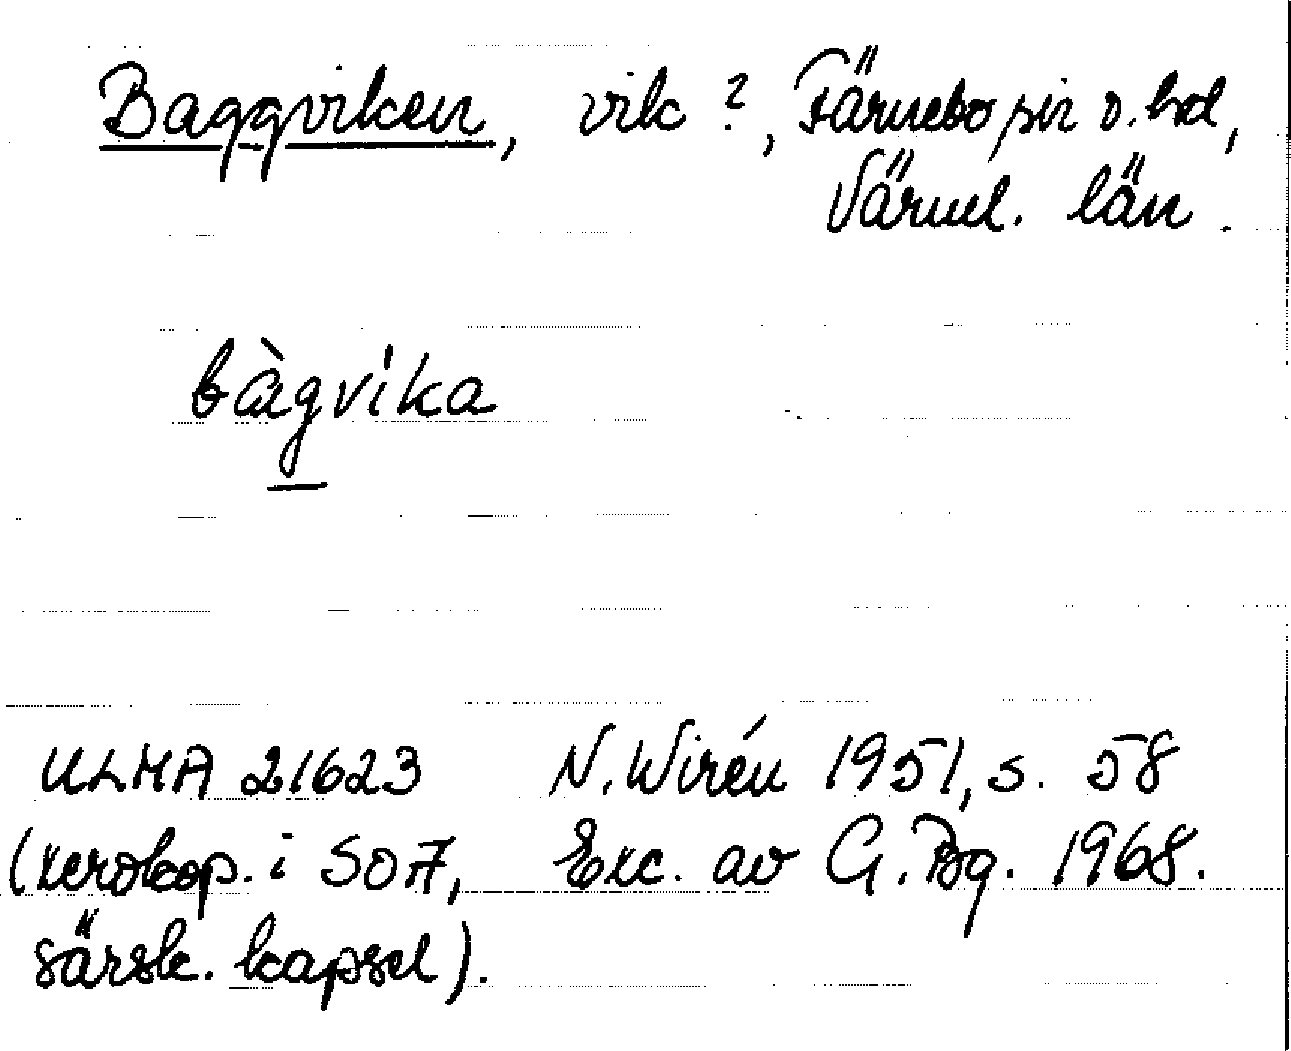 Baggviken, vik ?, Färnebo sn o. hd,
Värml. län.
bàgvíka
ULMA 21623 N. Wirén 1951, s. 58
(xerokop. i SOA, Exc. av G. Bg. 1968.
särsk. kapsel).